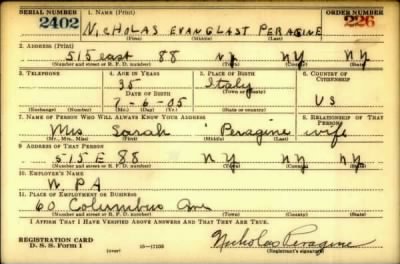 SERIAL NUMBER 1. NAME (Print) ORDER NUMBER
2402 NICHOLAS EVANGLAST PERAGINE 226
(First) (Middle) (Last)
2. ADDRESS (Print)
515 east 88 NY NY NY
(Number and street or R. F. D. number) (Town) (County) (State)
3. TELEPHONE 4. AGE IN YEARS 5. PLACE OF BIRTH 6. COUNTRY OF CITIZENSHIP
35 Italy
DATE OF BIRTH (Town or county)
7-6-05 US
(Exchange) (Number) (Mo.) (Day) (Yr.) (State or country)
7. NAME OF PERSON WHO WILL ALWAYS KNOW YOUR ADDRESS 8. RELATIONSHIP OF THAT PERSON
Mrs Sarah Peragine wife
(Mr., Mrs., Miss) (First) (Middle) (Last)
9. ADDRESS OF THAT PERSON
515 E 88 NY NY NY
(Number and street or R. F. D. number) (Town) (County) (State)
10. EMPLOYER'S NAME
W.PA
11. PLACE OF EMPLOYMENT OR BUSINESS
60 Columbus Ave
(Number and street or R. F. D. number) (Town) (County) (State)
I AFFIRM THAT I HAVE VERIFIED ABOVE ANSWERS AND THAT THEY ARE TRUE.
REGISTRATION CARD
D. S. S. Form 1 (over) 16—17105 Nicholas Peragine
(Registrant's signature)